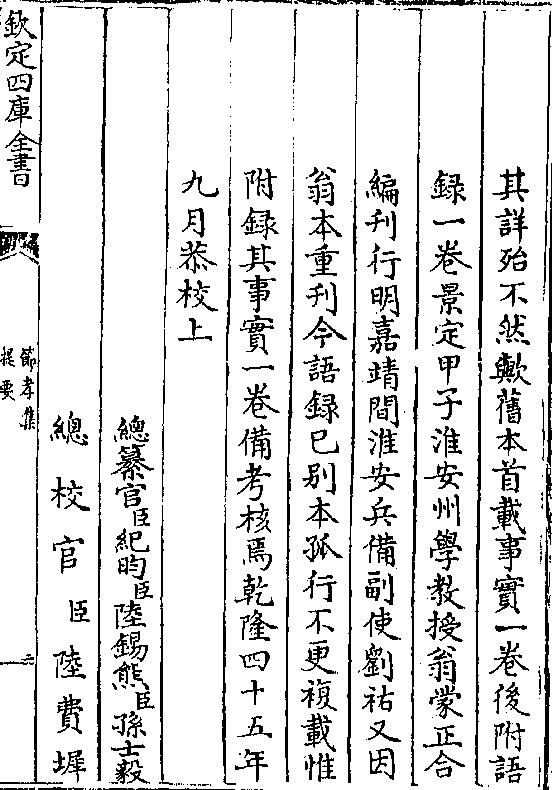 其詳殆不然歟舊本首載事實一卷後附語
録一卷景定甲子淮安州學教授翁蒙正合
編刊行明嘉靖間淮安兵備副使劉祐又因
翁本重刊今語録已别本孤行不更複載惟
附録其事實一卷備考核焉乾隆四十五年
九月恭校上
總纂官臣紀昀臣陸錫熊臣孫士毅
總校官臣陸費墀
欽定四庫全書
節孝集
提要
二